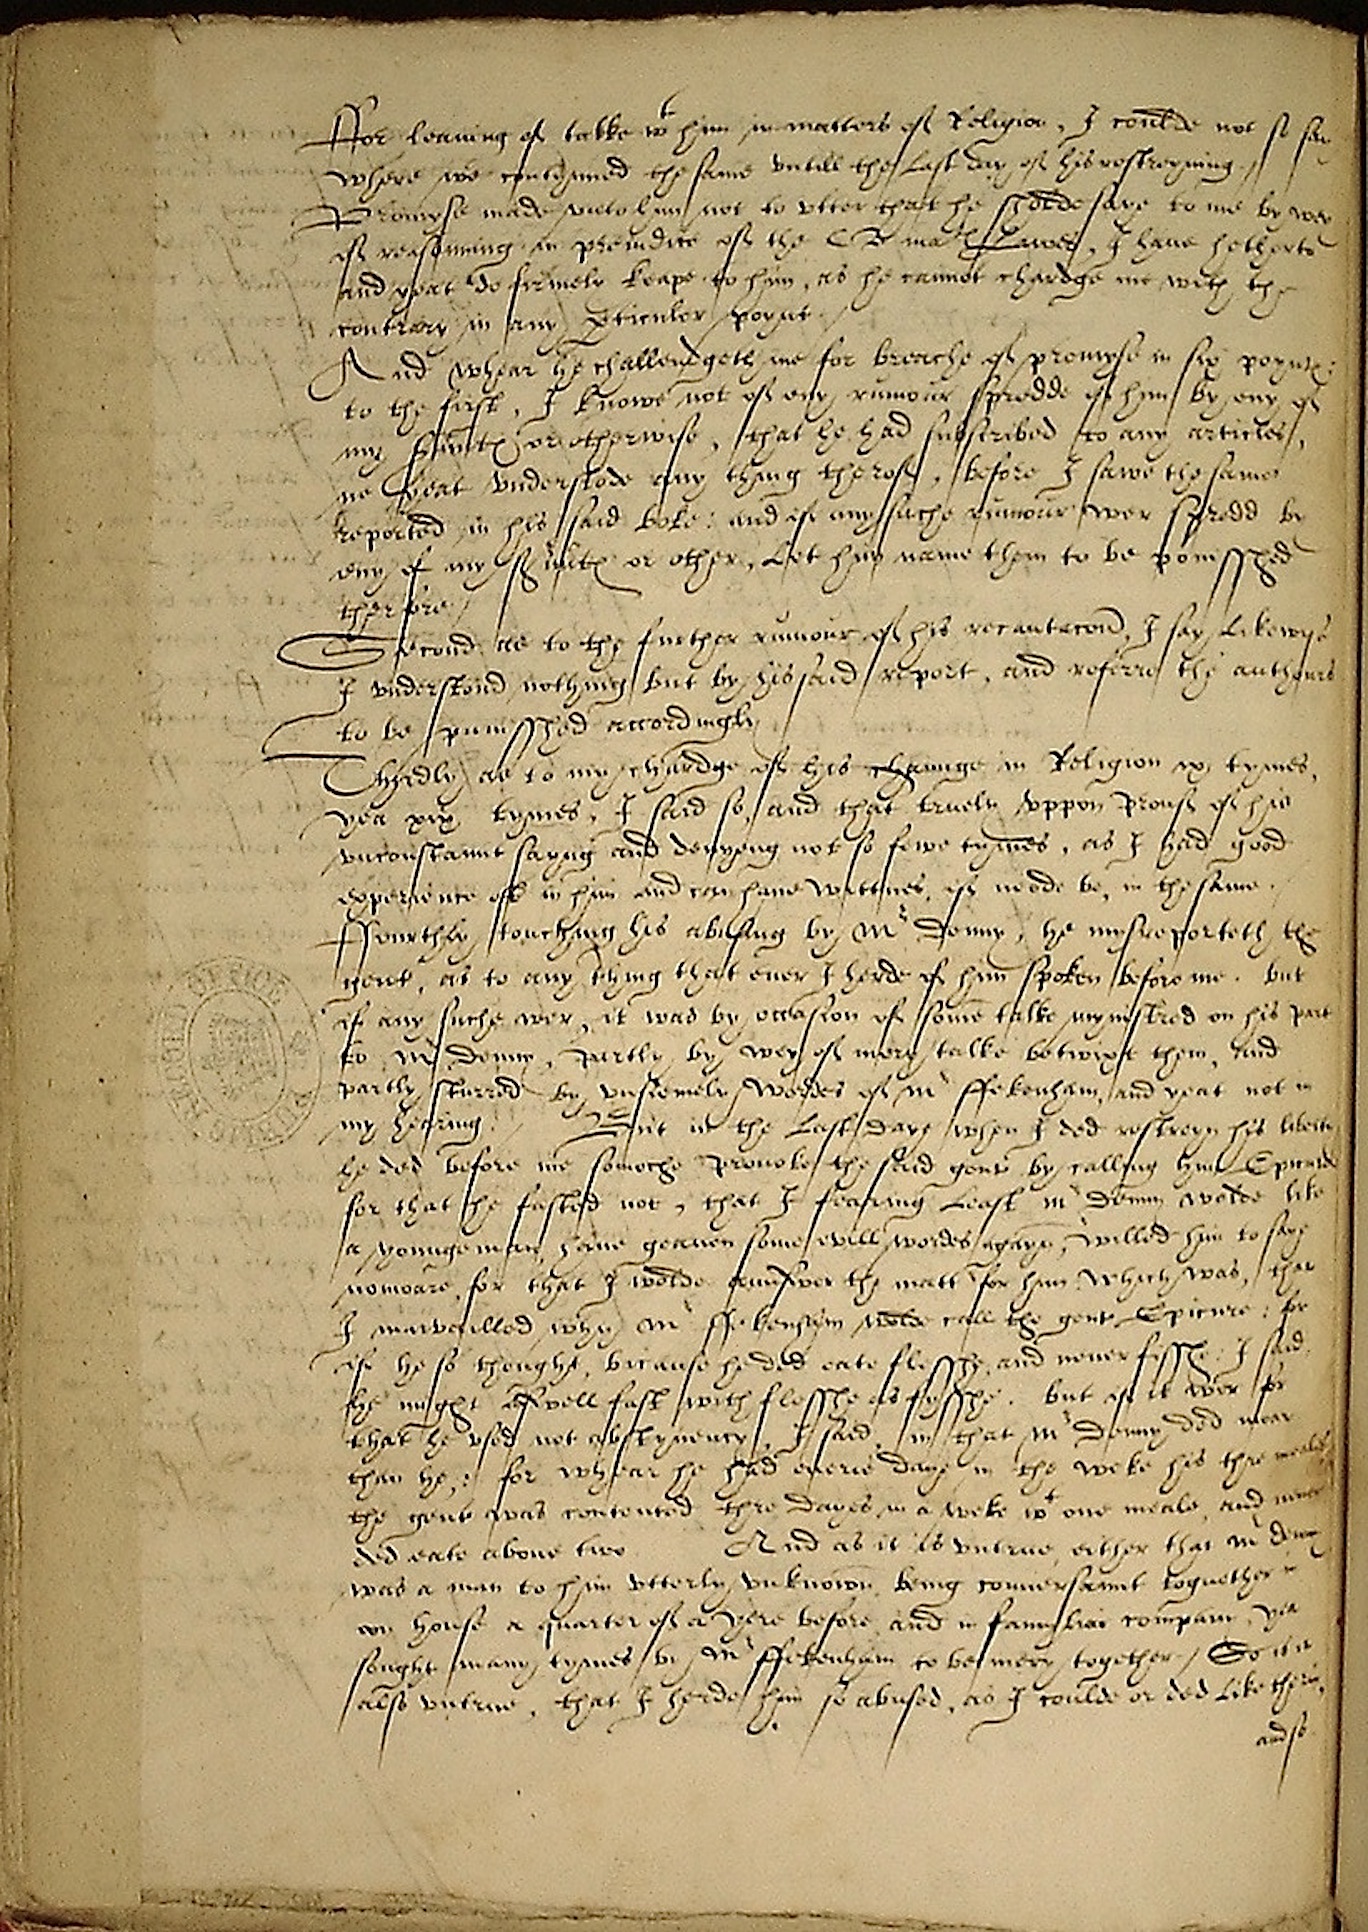 Ffor leaving of talke wt him in matters of Religion, I coulde not so say
where we contynued the same untill the last day of his restreyning /
Promyse made unto him not to utter that he sholde saye to me by wey
of reasonning in preiudice of the Q maties Lawes, I have hetherto
and yeat do firmely keape to him, as he cannot chardge me with the
contrary in any pticuler poynt /
And whear he challendgeth me for breache of promyse in six poyntes:
to the first, I knowe not of eny rumour spredde of him by eny of
my svntes or otherwise, that he had subscribed to any articles,
ne yeat understode any thing therof, before I sawe the same
reported in his said boke: and if any suche rumour wer spredd by
eny of my svntes or other, Let him name them to be ponisshed
therfore /
Second as to the further rumour of his recantacon, I say Likewyse
I understond nothing but by his said report, and referre the authours
to be punisshed accordingly
Thyrdly as to my chardge of his chaunge in Religion x tymes,
yea xix tymes, I said so, and that truely uppon prouf of his
unconstannt sayng and denyeng not so fewe tymes, as I had good
experience of in him and can have wittnes, if neede be, in the same.
Ffourthly touching his abusing by Mr Denny, he mysreporteth the
gent, as to any thing that ever I herde of him spoken before me. but
if any suche wer, it was by occasion of some talke mynistred on his part
to Mr Denny, partly by wey of mery talke betwixt them, and
partly sturred by unsiemely wordes of Mr Ffekenham, and yeat not in
my hearing. / But in the Last daye when I ded restreyn his libertie
he ded before me somoche provoke the said gent by calling him Epicure
for that he fasted not, that I fearing Least Mr Denny wolde like
a younge man, have geaven some evill wordes agayn, willed him to saye
nomoare, for that I wolde aunswer the matter for him which was, that
I marvailled why Mr Ffekenham wolde call the gent Epicure: for
if he so thought, bicause he ded eate flesshe, and never fisshe: I said,
he might aswell fast with flesshe as fysshe. but if it wer for
that he used not abstynency, I said, in that Mr Denny ded moar
than he: for whear he had everie daye in the weke his thre meales
the gent was contented thre dayes in a weke wt one meale, and never
ded eate above two. And as it is untrue, either that Mr Denny
was a man to him utterly unknown, being conversaunt toguether in
on house a quarter of a yere before, and in famyliar company, yea
sought many tymes by Mr Ffekenham to be mery together / So it is
also untrue, that I herde him so abused, as I coulde or ded Like therin,
and so
RECORD OFFICE
PUBLIC